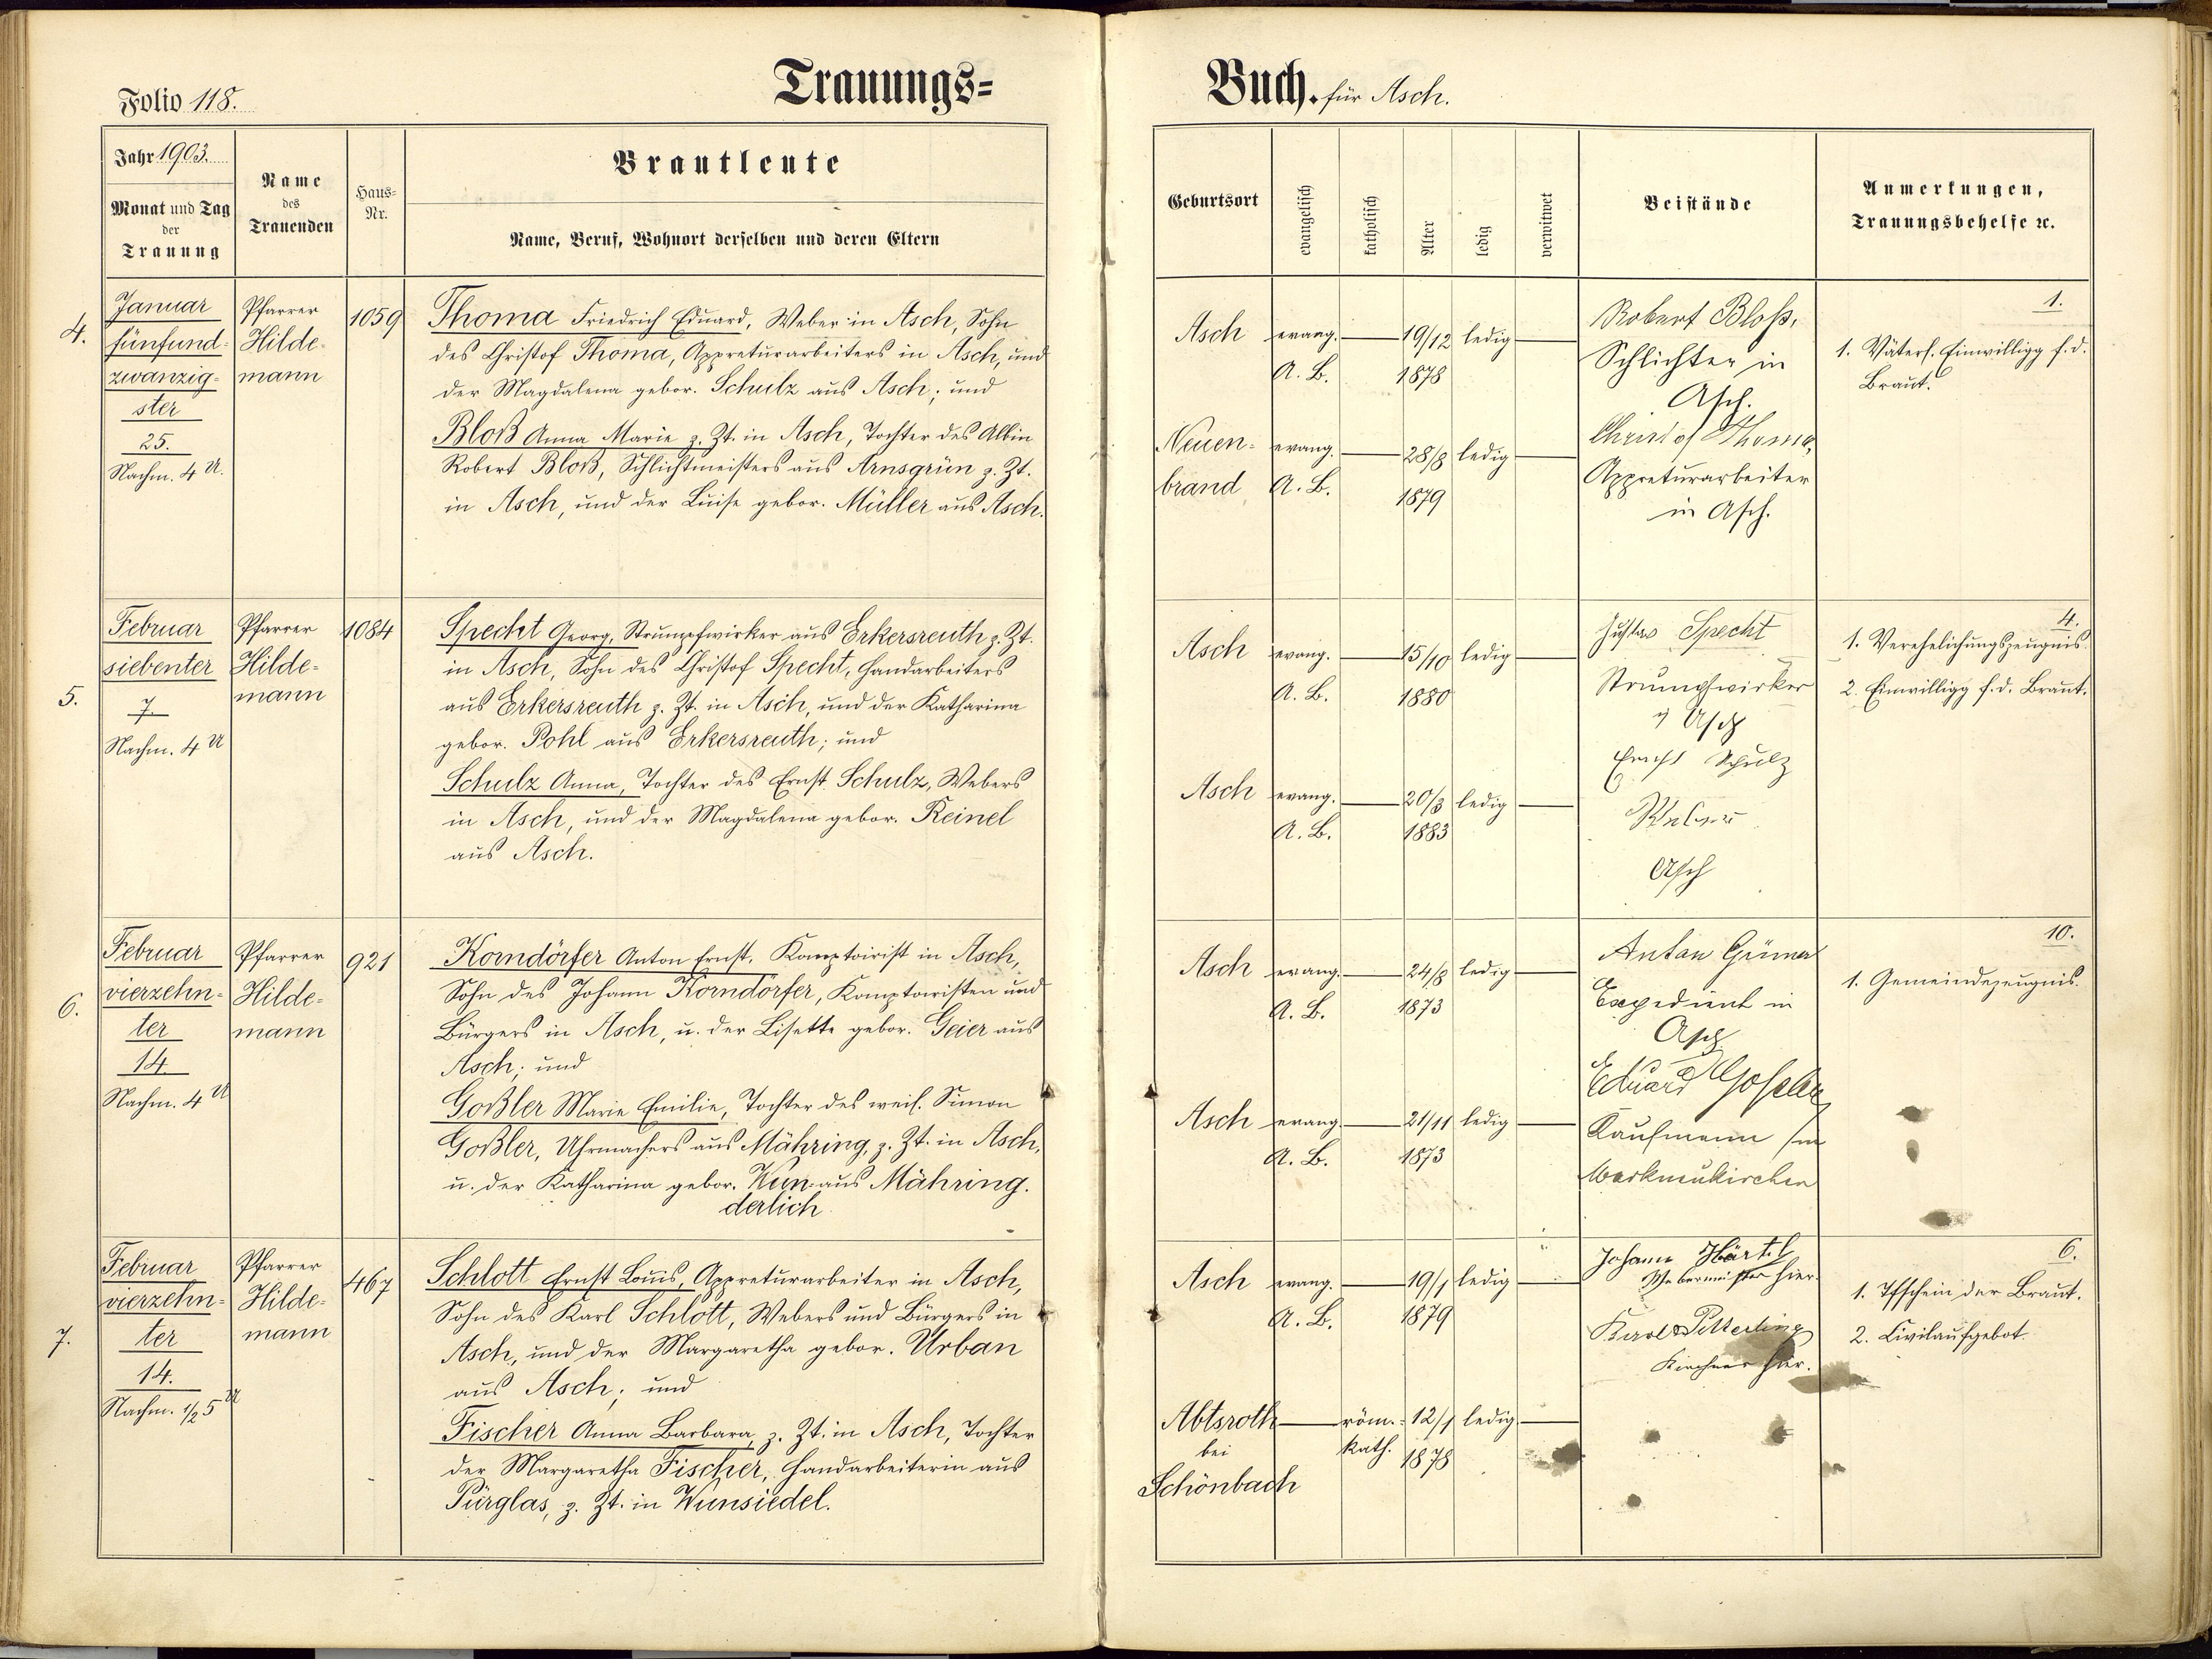 Folio 118.
Trauungs-
Buch. für Asch.
Jahr 1903.
Monat und Tag
der
Trauung
Name
des
Trauenden
Haus-
Nr.
Brautleute
Name, Beruf, Wohnort derselben und deren Eltern
Geburtsort
evangelisch
katholisch
Alter
ledig
verwitwet
Beistände
Anmerkungen,
Trauungsbehelfe ꝛc.
4.
Januar
fünfund-
zwanzig-
ster
25.
Nachm. 4 U.
Pfarrer
Hilde-
mann
1059
Thoma Friedrich Eduard, Weber in Asch, Sohn
des Christof Thoma, Appreturarbeiters in Asch, und
der Magdalena gebor. Schulz aus Asch; und
Bloß Anna Marie z. Zt. in Asch, Tochter des Albin
Robert Bloß, Schlichtmeisters aus Arnsgrün z. Zt.
in Asch, und der Luise gebor. Müller aus Asch.
Asch evang. 19/12 ledig
A. B. 1878
Neuen- evang. 28/8 ledig
brand A. B. 1879
Robert Bloß,
Schlichter in
Asch.
Christof Thoma,
Appreturarbeiter
in Asch.
1.
1. Väterl. Einwilligg f. d.
Braut.
5.
Februar
siebenter
7.
Nachm. 4 U
Pfarrer
Hilde-
mann
1084
Specht Georg, Strumpfwirker aus Erkersreuth z. Zt.
in Asch, Sohn des Christof Specht, Handarbeiters
aus Erkersreuth z. Zt. in Asch, und der Katharina
gebor. Pohl aus Erkersreuth; und
Schulz Anna, Tochter des Ernst Schulz, Webers
in Asch, und der Magdalena gebor. Reinel
aus Asch.
Asch evang. 15/10 ledig
A. B. 1880
Asch evang. 20/3 ledig
A. B. 1883
Gustav Specht
Strumpfwirker
Asch
Ernst Schulz
Asch
4.
1. Verehelichungszeugnis.
2. Einwilligg f. d. Braut.
6.
Februar
vierzehn-
ter
14.
Nachm. 4 U
Pfarrer
Hilde-
mann
921
Korndörfer Anton Ernst, Komptoirist in Asch,
Sohn des Johann Korndörfer, Komptoiristen und
Bürgers in Asch, u. der Lisette gebor. Geier aus
Asch; und
Goßler Marie Emilie, Tochter des weil. Simon
Goßler, Uhrmachers aus Mähring, z. Zt. in Asch,
u. der Katharina gebor. Wun- aus Mähring.
derlich
Asch evang. 24/8 ledig
A. B. 1873
Asch evang. 21/11 ledig
A. B. 1873
Anton Grüner
Expedient in
Asch
Eduard Goßler
Kaufmann in
Markneukirchen
10.
1. Gemeindezeugnis.
7.
Februar
vierzehn-
ter
14.
Nachm. 1/2 5 U
Pfarrer
Hilde-
mann
467
Schlott Ernst Louis, Appreturarbeiter in Asch,
Sohn des Karl Schlott, Webers und Bürgers in
Asch, und der Margaretha gebor. Urban
aus Asch; und
Fischer Anna Barbara, z. Zt. in Asch, Tochter
der Margaretha Fischer, Handarbeiterin aus
Pürglas, z. Zt. in Wunsiedel.
Asch evang. 19/1 ledig
A. B. 1879
Abtsroth röm.- 12/1 ledig
bei kath. 1878
Schönbach
Johann Härtl
Webermeister hier
Kirchner hier.
6.
1. Tfschein der Braut.
2. Civilaufgebot.